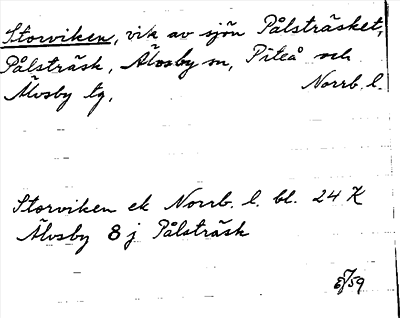 Storviken, vik av sjön Pålsträsket,
Pålsträsk, Älvsby sn, Piteå och
Älvsby tg, Norrb. l.
Storviken ek Norrb. l. bl. 24 K
Älvsby 8 j Pålsträsk